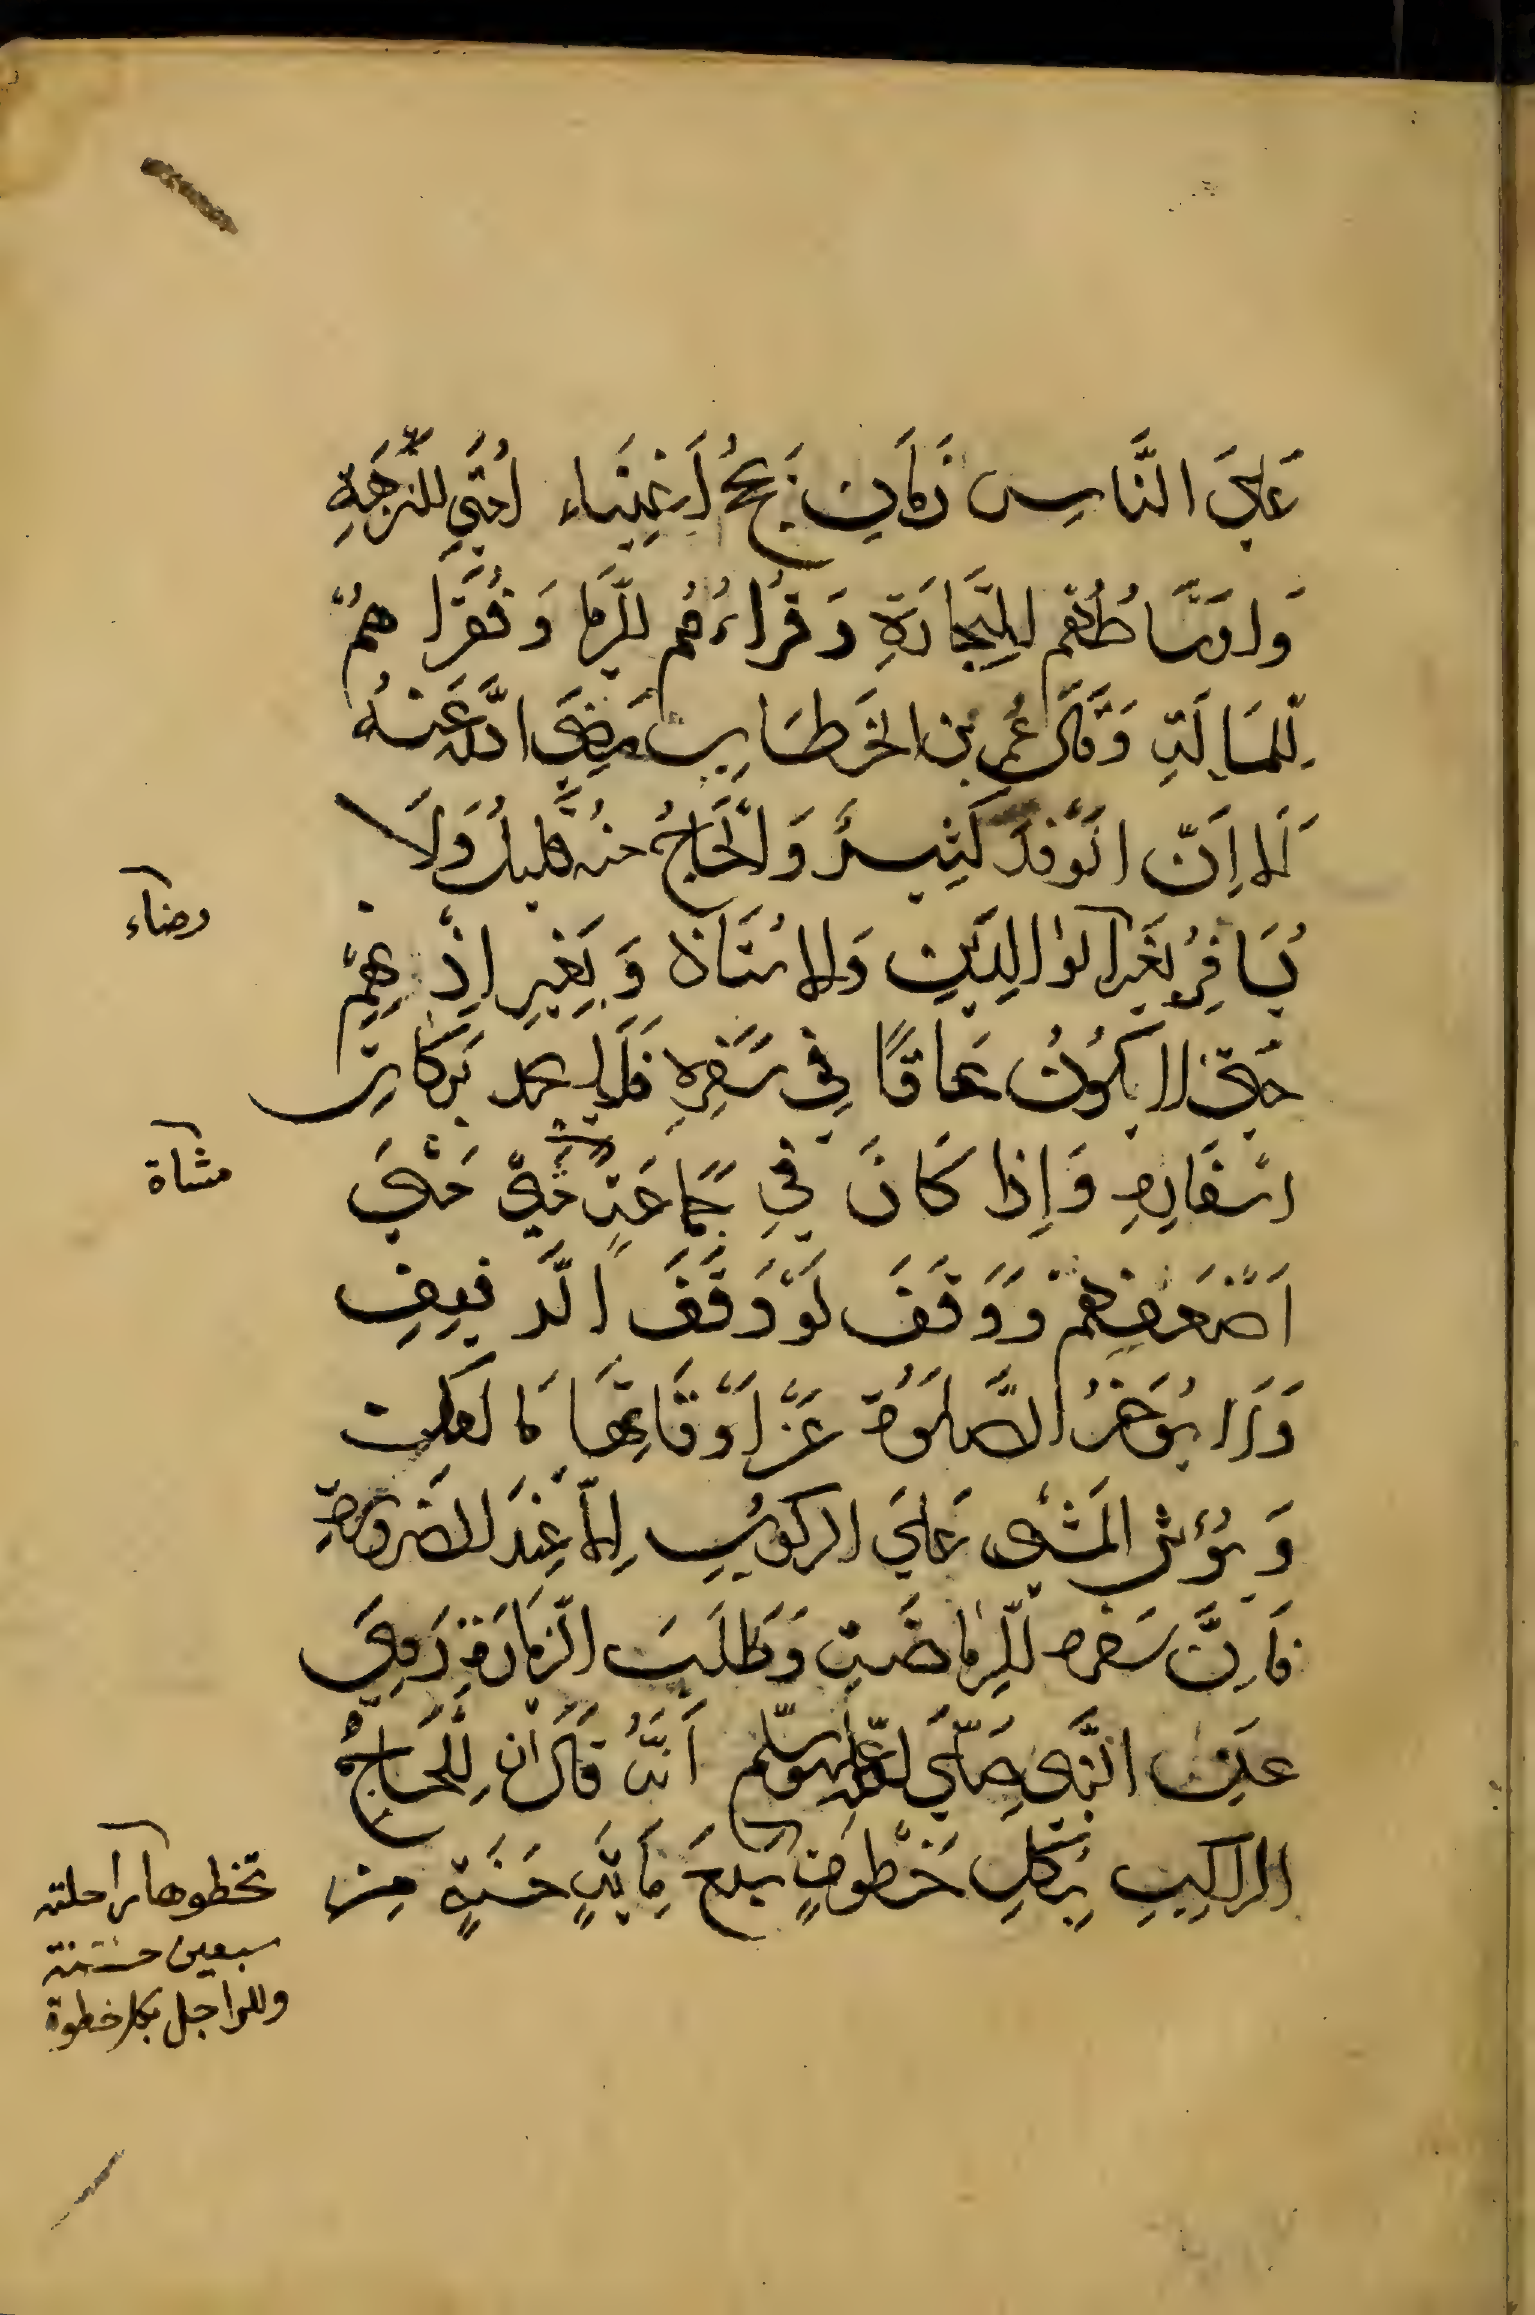 عَلَى النَّاسِ زَمَانٌ يَحُجُّ أَغْنِيَاء اُمَّتِي لِلنُّزْهَةِ
وَاوسَاطُهُم لِلتِّجَارَةِ وَقُرَّاءُهُم لِلرِّيَا وَفُقَرَاهُمْ
لِلْمَسَالَةِ وَقَالَ عُمَر بن الخَطَّابِ رَضِيَ اللّٰه عَنْهُ
اَلَا اِنَّ الوَفْدَ كَثِيرٌ وَالْحَاجُّ مِنْهُ قَلِيلٌ وَلَا
يُسَافِرُ بِغَيْرِ الْوَالِدَيْنِ وَالاسْتَاذ وَبِغَيْرِ اِذْنِهِمْ
حَتّى لا يَكُونُ عَاقًا فِي سَفَرِهِ فَلَا يجد بَرَكَاتِ
اسْفَارِهِ وَاِذَا كَانَ فِي جَمَاعَةٍ مَشَى مَشْيَ
اَضْعَفِهِمْ وَوَقَفَ لَوْ وَقَفَ الرَّفِيقِ
وَلَا يُوَخِّرُ الصَّلَوةَ عَنْ اَوْقَاتِهَا مَا امكنت
وَيُؤثِر المَشْيَ عَلَى الركُوبِ اِلَّا عِنْدَ الضَّرُورَةِ
فَاِنَّ سَفَره لِلرِّيَاضَةِ وَطَلَبَ الزِّيَارَةِ رَوِيَ
عَنِ النَّبِي صَلَّى اللّٰه عَلَيه وَسَلَّم اَنَّهُ قَالَ ان لِلْحَاجِّ
الرَاكِبِ بِكُلِّ خَطْوَةٍ سَبْعَ مِايَةٍ حَسَنَةٍ مِنْ
رضاء
مشاة
تخطوها راحلته
سبعين حسنة
وللراجل بكل خطوة